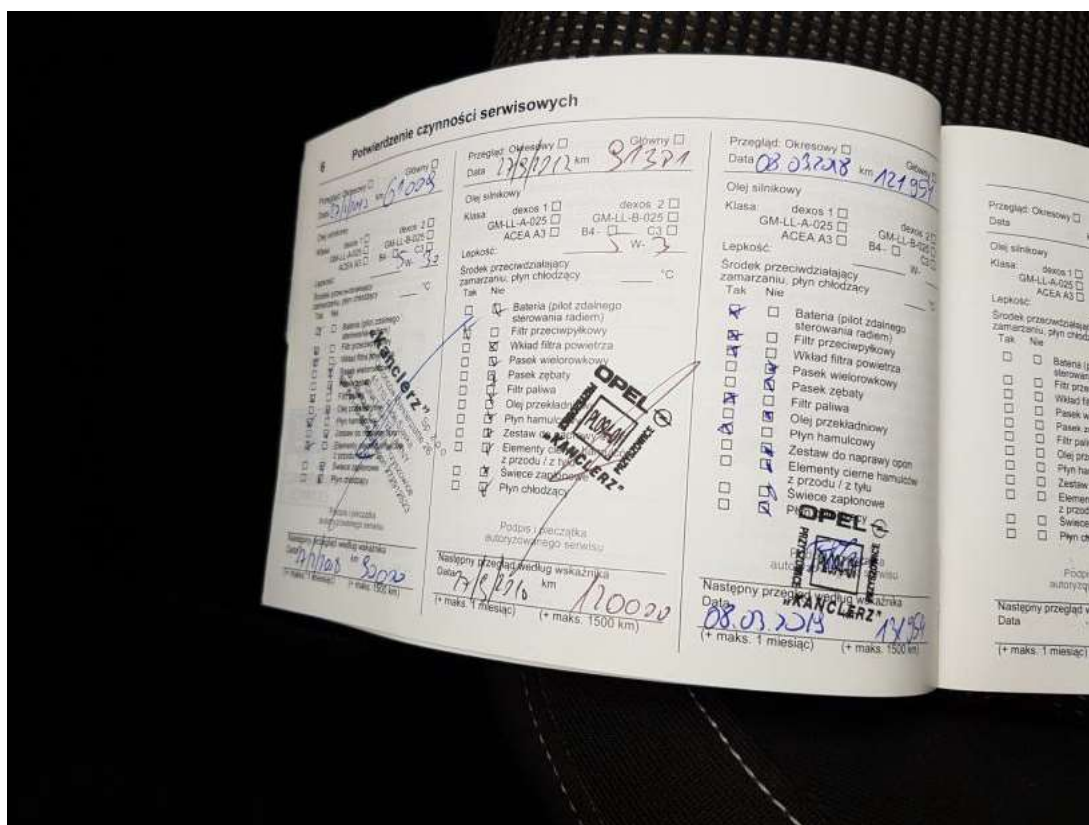 6 Potwierdzenie czynności serwisowych
Przegląd: Okresowy Główny
Data km 61009
Olej silnikowy
Klasa: dexos 1 dexos 2
GM-LL-A-025 GM-LL-B-025
ACEA A3 B4 - C3
Lepkość: 5 W-
Środek przeciwdziałający
zamarzaniu, płyn chłodzący °C
Tak Nie
Bateria (pilot zdalnego
sterowania radiem)
Filtr przeciwpyłkowy
Wkład filtra powietrza
Pasek wielorowkowy
Pasek zębaty
Filtr paliwa
Olej przekładniowy
Płyn hamulcowy
Zestaw do naprawy
Elementy cierne hamulców
z przodu / z tyłu
Świece zapłonowe
Płyn chłodzący
"Kanclerz" Sp. z o.o.
Podpis i pieczątka
autoryzowanego serwisu
Następny przegląd według wskaźnika
Data km 90000
(+ maks. 1 miesiąc) (+ maks. 1500 km)
Przegląd: Okresowy Główny
Data km 91381
Olej silnikowy
Klasa: dexos 1 dexos 2
GM-LL-A-025 GM-LL-B-025
ACEA A3 B4 - C3
Lepkość: 5 W-
Środek przeciwdziałający
zamarzaniu, płyn chłodzący °C
Tak Nie
Bateria (pilot zdalnego
sterowania radiem)
Filtr przeciwpyłkowy
Wkład filtra powietrza
Pasek wielorowkowy
Pasek zębaty
Filtr paliwa
Olej przekładniowy
Płyn hamulcowy
Zestaw do naprawy opon
Elementy cierne hamulców
z przodu / z tyłu
Świece zapłonowe
Płyn chłodzący
OPEL
PRZYSZOWICE
"KANCLERZ"
Podpis i pieczątka
autoryzowanego serwisu
Następny przegląd według wskaźnika
Data km 120000
(+ maks. 1 miesiąc) (+ maks. 1500 km)
Przegląd: Okresowy Główny
Data 08.03.2018 km 121954
Olej silnikowy
Klasa: dexos 1 dexos 2
GM-LL-A-025 GM-LL-B-025
ACEA A3 B4 - C3
Lepkość: W-
Środek przeciwdziałający
zamarzaniu, płyn chłodzący °C
Tak Nie
Bateria (pilot zdalnego
sterowania radiem)
Filtr przeciwpyłkowy
Wkład filtra powietrza
Pasek wielorowkowy
Pasek zębaty
Filtr paliwa
Olej przekładniowy
Płyn hamulcowy
Zestaw do naprawy opon
Elementy cierne hamulców
z przodu / z tyłu
Świece zapłonowe
OPEL
PRZYSZOWICE
"KANCLERZ"
Następny przegląd według wskaźnika
Data 08.03.2019
(+ maks. 1 miesiąc) (+ maks. 1500 km)
Przegląd: Okresowy
Data
Olej silnikowy
Klasa: dexos 1
GM-LL-A-025
ACEA A3
Lepkość:
Środek
zamarzaniu, płyn
Tak Nie
Bateria
Filtr
Wkład
Pasek
Pasek
Filtr
Olej
Płyn
Zestaw
z
Płyn
Następny przegląd
Data
(+ maks. 1 miesiąc)